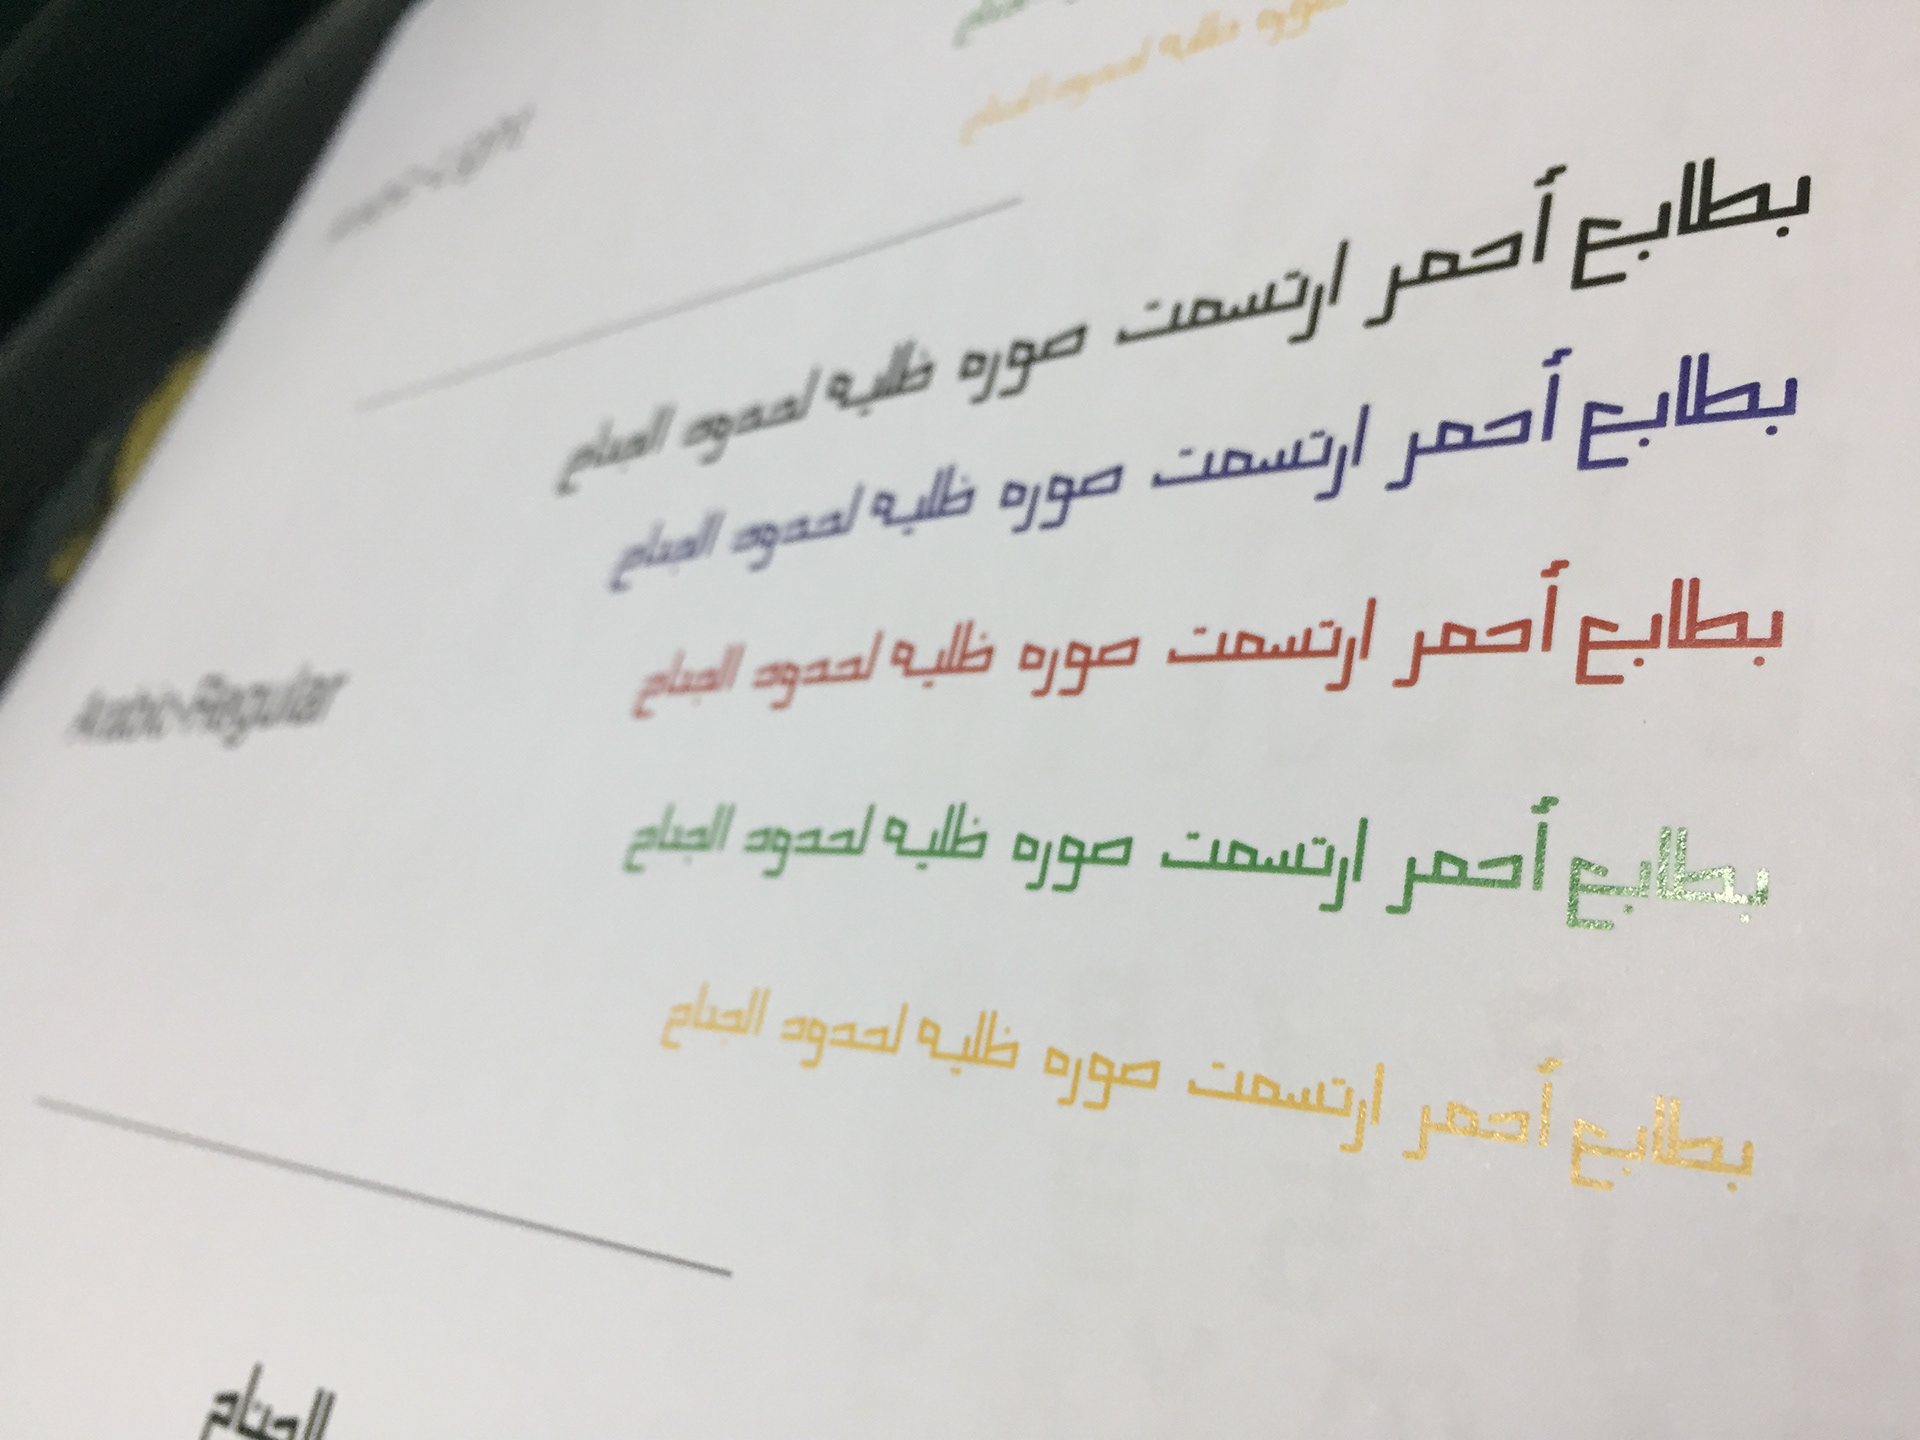 صوره ظليه لحدود الجناح
بطابع أحمر ارتسمت صوره ظليه لحدود الجناح
بطابع أحمر ارتسمت صوره ظليه لحدود الجناح
بطابع أحمر ارتسمت صوره ظليه لحدود الجناح
Arabic-Regular
بطابع أحمر ارتسمت صوره ظليه لحدود الجناح
بطابع أحمر ارتسمت صوره ظليه لحدود الجناح
الجناح